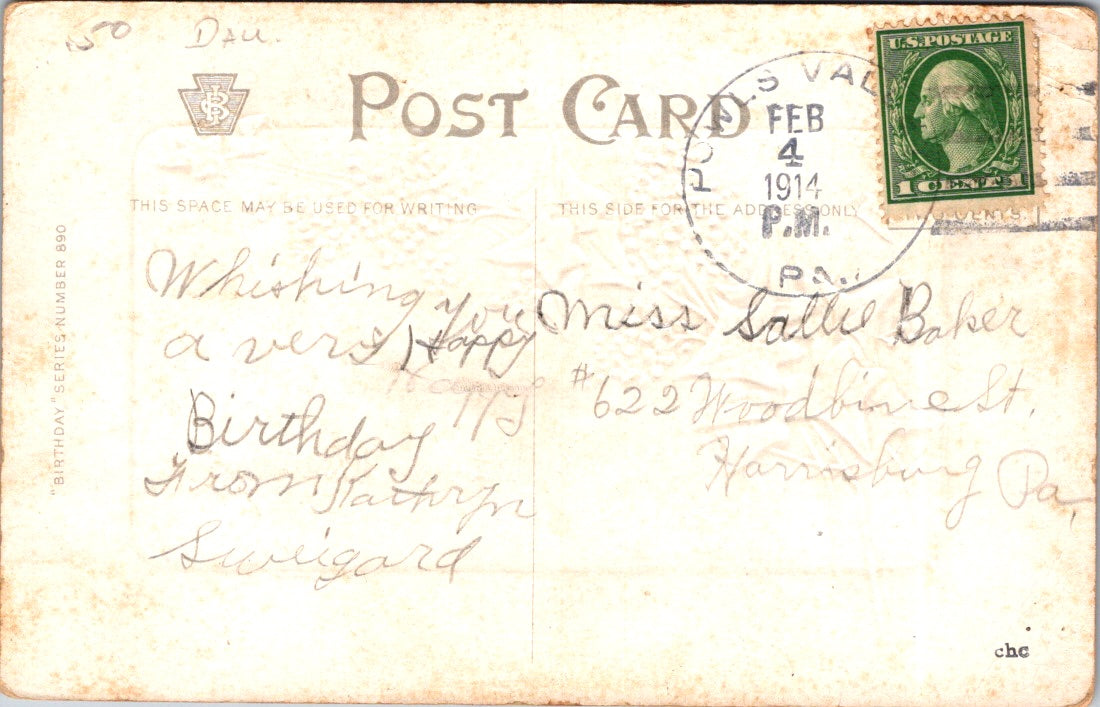 50 Dau.
POST CARD
POWLS VAL
FEB
4
1914
P.M.
PA.
U.S. POSTAGE
1 CENT 1
THIS SPACE MAY BE USED FOR WRITING
THIS SIDE FOR THE ADDRESS ONLY
"BIRTHDAY" SERIES NUMBER 890
Whishing you
a very Happy
Birthday
From Kathryn
Sweigard
Miss Sallie Baker
#622 Woodbine St.
Harrisburg Pa,
chc